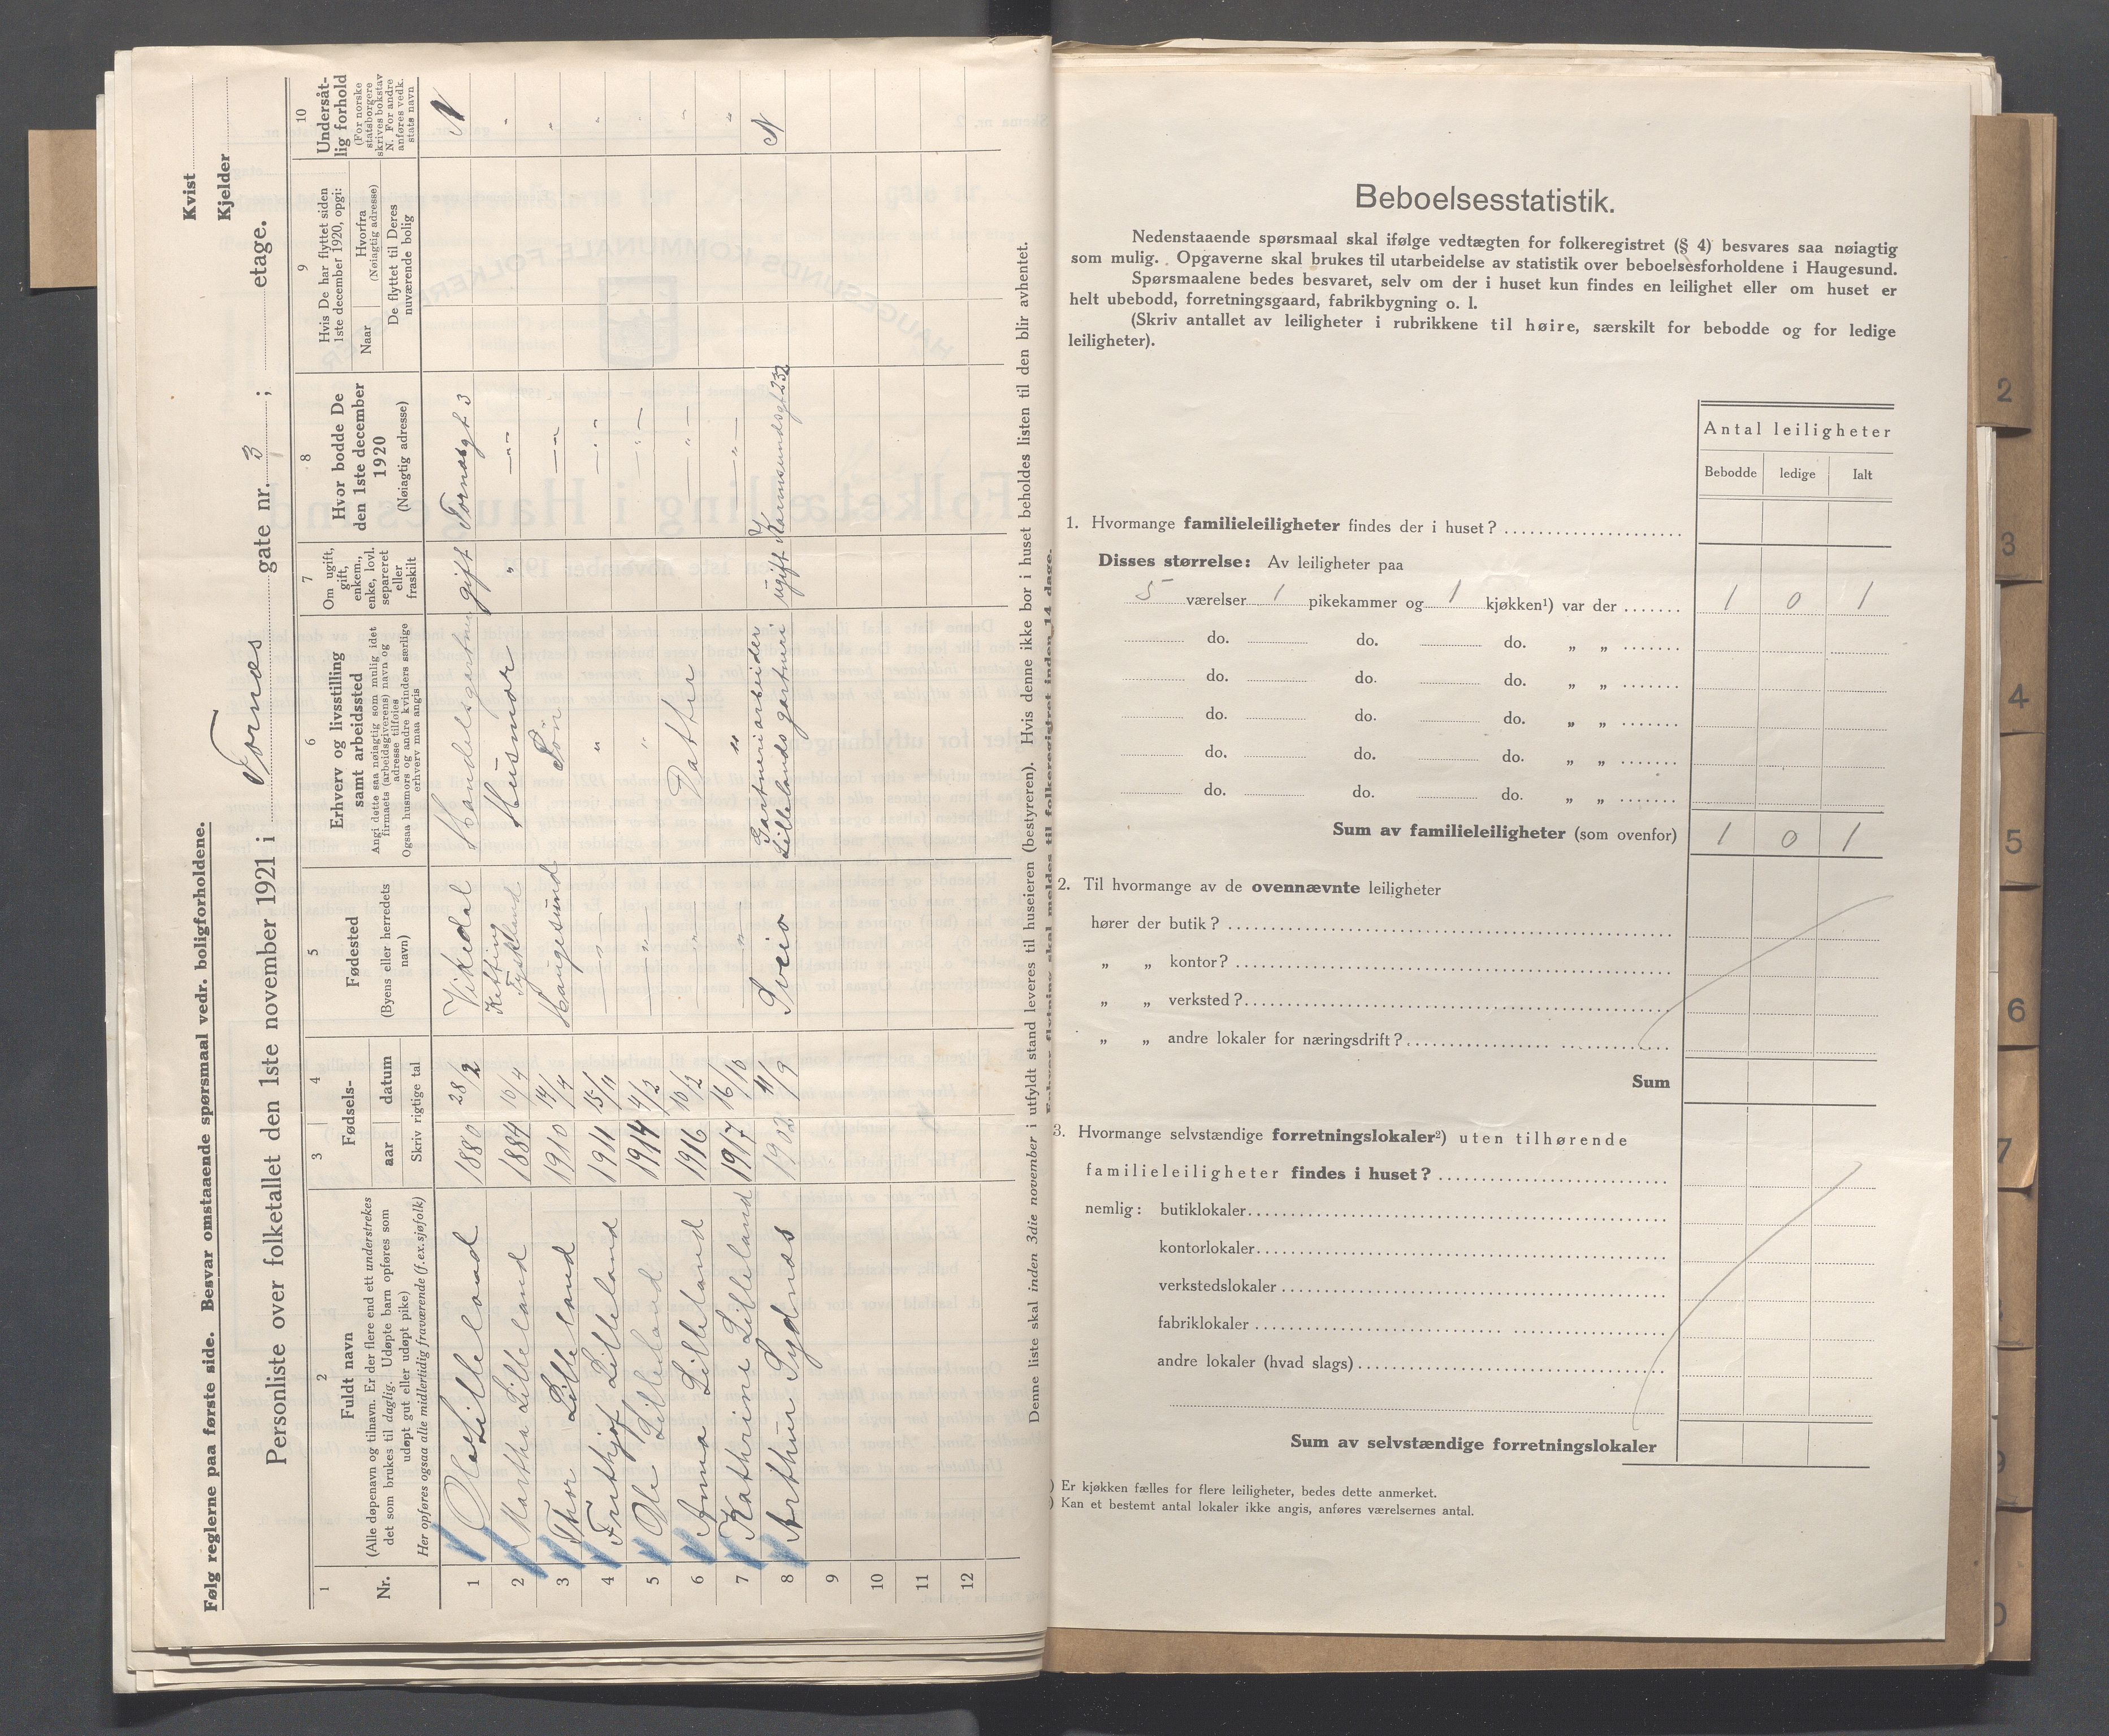 Følg reglerne paa første side. Besvar omstaaende spørsmaal vedr. boligforholdene.
Kvist
Kjelder
Personliste over folketallet den 1ste november 1921 i Tornæs gate nr. 3 ; etage.
1
Nr.
2
Fuldt navn
(Alle døpenavn og tilnavn. Er der flere end ett understrekes
det som brukes til daglig. Udøpte barn opføres som
udøpt gut eller udøpt pike)
Her opføres ogsaa alle midlertidig fraværende (f.ex.sjøfolk)
3 4
Fødsels-
aar datum
Skriv rigtige tal
5
Fødested
(Byens eller herredets
navn)
6
Erhverv og livsstilling
samt arbeidssted
Angi dette saa nøiagtig som mulig idet
firmaets (arbeidsgiverens) navn og
adresse tilføies
Ogsaa husmors og andre kvinders særlige
erhverv maa angis
7
Om ugift,
gift,
enkem.,
enke, lovl.
separeret
eller
fraskilt
8
Hvor bodde De
den 1ste december
1920
(Nøiagtig adresse)
9
Hvis De har flyttet siden
1ste december 1920, opgi:
Naar
Hvorfra
(Nøiagtig adresse)
De flyttet til Deres
nuværende bolig
10
Undersåt-
lig forhold
(For norske
statsborgere
skrives bokstav
N. For andre
anføres vedk.
stats navn
1 Ole Lilleland 1880 28/2 Vikedal Handelsgartner gift Tornæsgt 3 N
2 Martha Lilleland 1884 10/4 Ketting Tyskland Husmor " — " — "
3 Thor Lilleland 1910 14/4 Haugesund Søn — " — "
4 Frithjof Lilleland 1911 15/11 — " — " — " — "
5 Ole Lilleland 1914 4/2 — " — " — " — "
6 Anna Lilleland 1916 10/2 — " — Datter — " — "
7 Kathrine Lilleland 1917 16/10 — " — " — " — "
8 Arthur Sydnæs 1902 11/9 Sveio Gartneriarbeider Lillelands gartneri ugift Karmsundsgt 232 N
9
10
11
12
Denne liste skal inden 3die november i utfyldt stand leveres til huseieren (bestyreren). Hvis denne ikke bor i huset beholdes listen til den blir avhentet.
Enhver flytning skal meldes til folkeregistret inden 14 dage.
Beboelsesstatistik.
Nedenstaaende spørsmaal skal ifølge vedtægten for folkeregistret (§ 4) besvares saa nøiagtig
som mulig. Opgaverne skal brukes til utarbeidelse av statistik over beboelsesforholdene i Haugesund.
Spørsmaalene bedes besvaret, selv om der i huset kun findes en leilighet eller om huset er
helt ubebodd, forretningsgaard, fabrikbygning o. l.
(Skriv antallet av leiligheter i rubrikkene til høire, særskilt for bebodde og for ledige
leiligheter).
Antal leiligheter
Bebodde ledige Ialt
1. Hvormange familieleiligheter findes der i huset?
Disses størrelse: Av leiligheter paa
5 værelser 1 pikekammer og 1 kjøkken¹) var der 1 0 1
do. do. do. „ „
do. do. do. „ „
do. do. do. „ „
do. do. do. „ „
do. do. do. „ „
Sum av familieleiligheter (som ovenfor) 1 0 1
2. Til hvormange av de ovennævnte leiligheter
hører der butik?
„ „ kontor?
„ „ verksted?
„ „ andre lokaler for næringsdrift?
Sum
3. Hvormange selvstændige forretningslokaler²) uten tilhørende
familieleiligheter findes i huset?
nemlig: butiklokaler
kontorlokaler
verkstedslokaler
fabriklokaler
andre lokaler (hvad slags)
Sum av selvstændige forretningslokaler
) Er kjøkken fælles for flere leiligheter, bedes dette anmerket.
) Kan et bestemt antal lokaler ikke angis, anføres værelsernes antal.
2
3
4
5
6
7
9